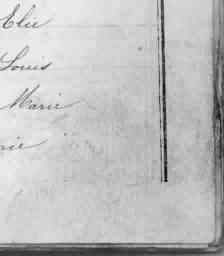 Elie
Louis
Marie
rie